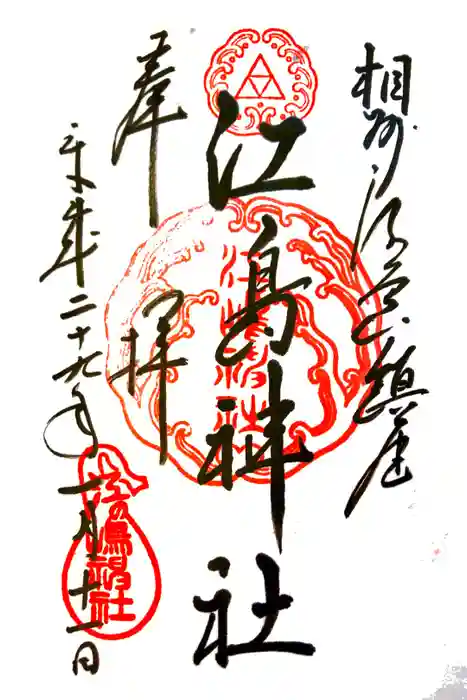 相州江の島鎮座
奉拝
江島神社
平成二十九年一月十一日
江嶋神社
江の嶋神社